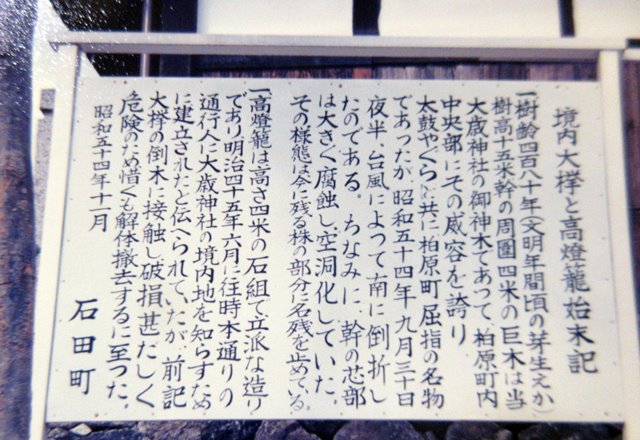 境内大欅と高燈籠始末記
一樹齢四百八十年(文明年間頃の芽生えか)
樹高十五米幹の周囲四米の巨木は当
大歳神社の御神木であって、柏原町内
中央部にその威容を誇り
太鼓やぐらと共に柏原町屈指の名物
であったが、昭和五十四年九月三十日
夜半、台風によって南に倒折し
たのである。ちなみに、幹の芯部
は大きく腐蝕し空洞化していた。
その様態は今に残る株の部分に名残を止めている。
一高燈籠は高さ四米の石組で立派な造り
であり明治四十五年六月に往時本通りの
通行人に大歳神社の境内地を知らすため
に建立されたと伝へられていたが、前記
大欅の倒木に接触し破損甚だしく
危険のため惜くも解体撤去するに至った。
昭和五十四年十一月
石田町